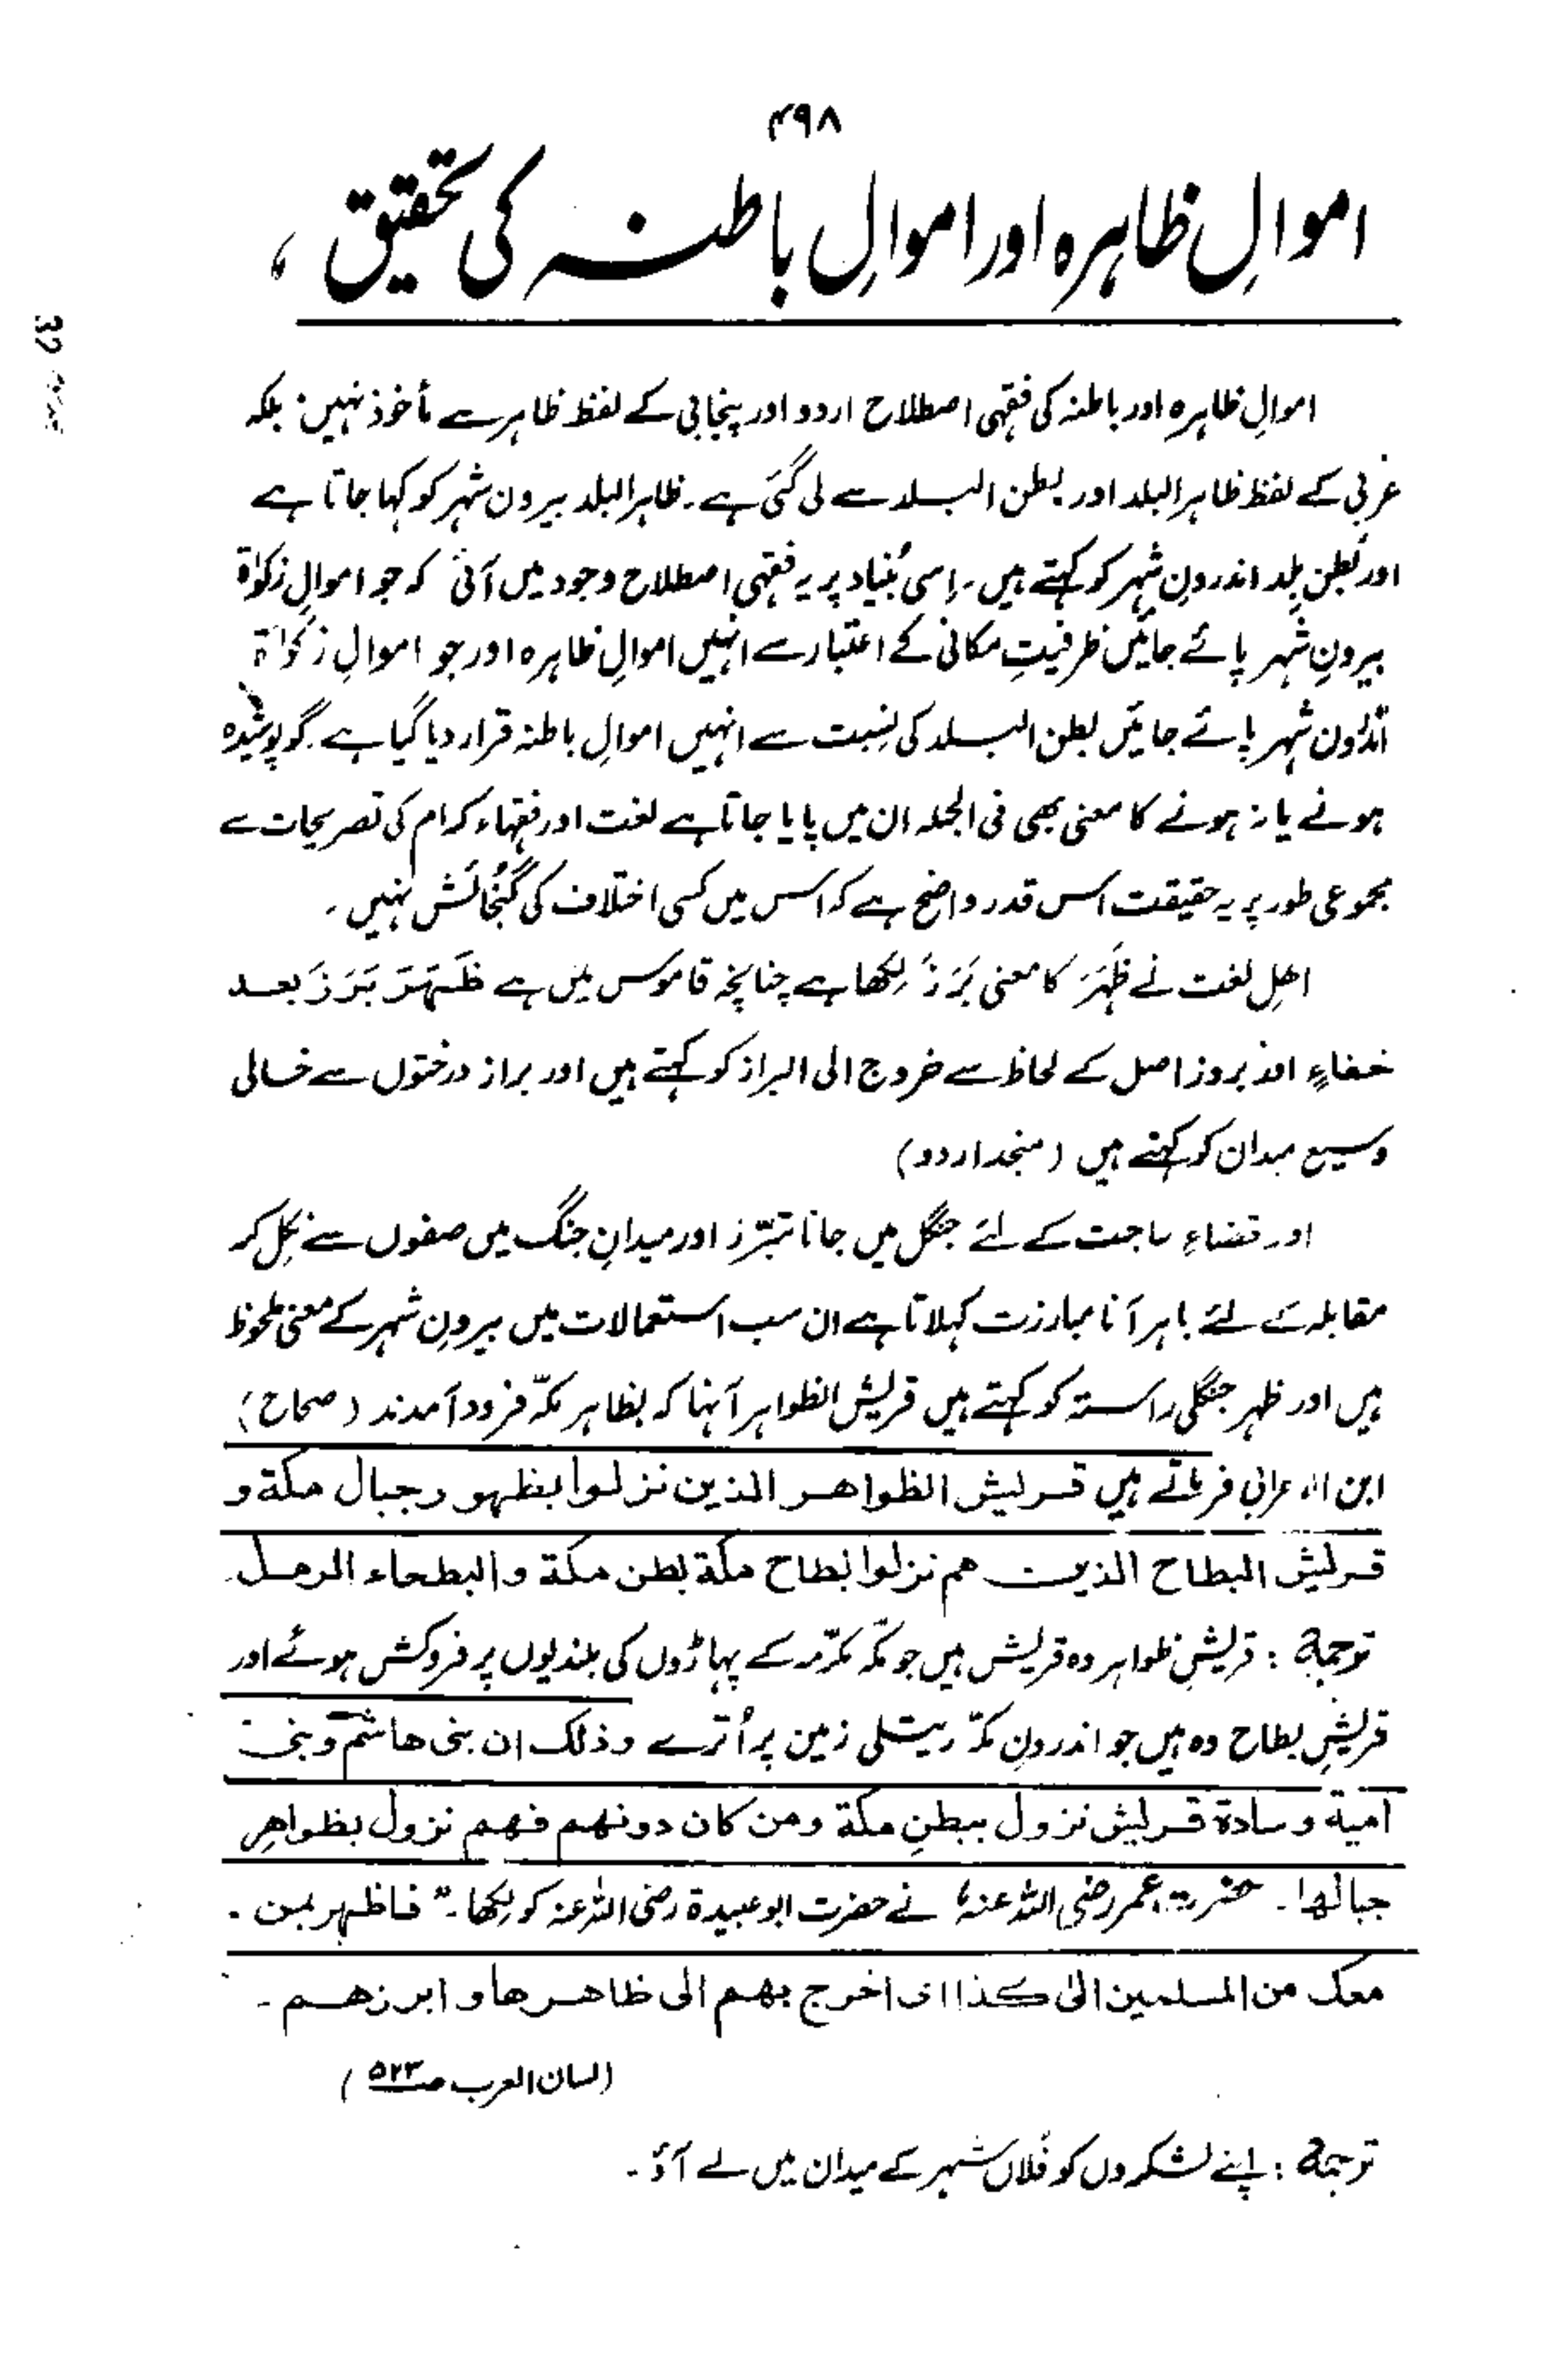 ۴۹۸
اموالِ ظاہرہ اور اموالِ باطنہ کی تحقیق،
اموالِ ظاہرہ اور باطنہ کی فقہی اصطلاح اردو اور پنجابی کے لفظ ظاہر سے مأخوذ نہیں۔ بلکہ
عربی کے لفظ ظاہر البلد اور بطن البلد سے لی گئی ہے۔ ظاہر البلد بیرون شہر کو کہا جاتا ہے
اور بطنِ بلد اندرونِ شہر کو کہتے ہیں۔ اِسی بُنیاد پر یہ فقہی اصطلاح وجود میں آئی کہ جو اموالِ زکوٰة
بیرونِ شہر پائے جائیں ظرفیتِ مکانی کے اعتبار سے انہیں اموالِ ظاہرہ اور جو اموالِ زکوٰة
اندرون شہر پائے جائیں بطن البلد کی نِسبت سے انہیں اموالِ باطنہ قرار دیا گیا ہے۔ گو پوشیدہ
ہونے یا نہ ہونے کا معنی بھی فی الجملہ ان میں پایا جاتا ہے لغت اور فقہاء کرام کی تصریحات سے
مجموعی طور پر یہ حقیقت اس قدر واضح ہے کہ اس میں کسی اختلاف کی گنجائش نہیں۔
اھلِ لغت نے ظَہَرَ کا معنی بَرَزَ لِکھا ہے چنانچہ قاموس میں ہے ظَہَرَ بَرَزَ بعد
خفاءٍ اور بروز اصل کے لحاظ سے خروج الی البراز کو کہتے ہیں اور براز درختوں سے خالی
وسیع میدان کو کہتے ہیں (منجد اردو)
اور قضاءِ حاجت کے لئے جنگل میں جانا تبرّز اور میدانِ جنگ میں صفوں سے نکل کر
مقابلہ کے لئے باہر آنا مبارزت کہلاتا ہے ان سب استعمالات میں بیرونِ شہر کے معنی ملحوظ
ہیں اور ظہر جنگلی راستہ کو کہتے ہیں قریش الظواہر آنہا کہ بظاہر مکّہ فرود آمدند (صحاح)
ابن الاعرابی فرماتے ہیں قریش الظواھر الذین نزلوا بظہور جبال مکة و
قریش البطاح الذین ھم نزلوا بطاح مکة بطن مکة والبطحاء الرمل
ترجمة : قریشِ ظواہر وہ قریش ہیں جو مکّہ مکرّمہ کے پہاڑوں کی بلندیوں پر فروکش ہوئے اور
قریشِ بطاح وہ ہیں جو اندرونِ مکہّ ریتلی زمین پر اُترے وذلک ان بنی ھاشم وبنی
امیة وسادة قریش نزول ببطنِ مکة ومن کان دونھم فھم نزول بظواھِر
جبالھا۔ حضرت عمر رضی اللہ عنہ نے حضرت ابو عبیدة رضی اللہ عنہ کو لِکھا۔ "فاظہر بمن
معک من المسلمین الیٰ کذا ای اخرج بھم الی ظاھرھا وابرزھم۔
(لسان العرب صـ ۵۲۳)
ترجمة : اپنے لشکروں کو فلاں شہر کے میدان میں لے آؤ۔